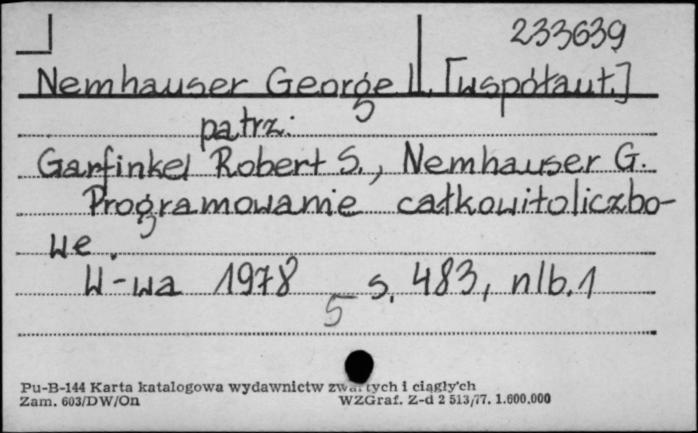 233639
Nemhauser George L. [współaut.]
patrz:
Garfinkel Robert S., Nemhauser G.
Programowanie całkowitoliczbo-
we.
W-wa 1978 s. 483, nlb. 1
5
Pu-B-144 Karta katalogowa wydawnictw zwartych i ciągłych
Zam. 603/DW/On WZGraf. Z-d 2 513/77. 1.600.000